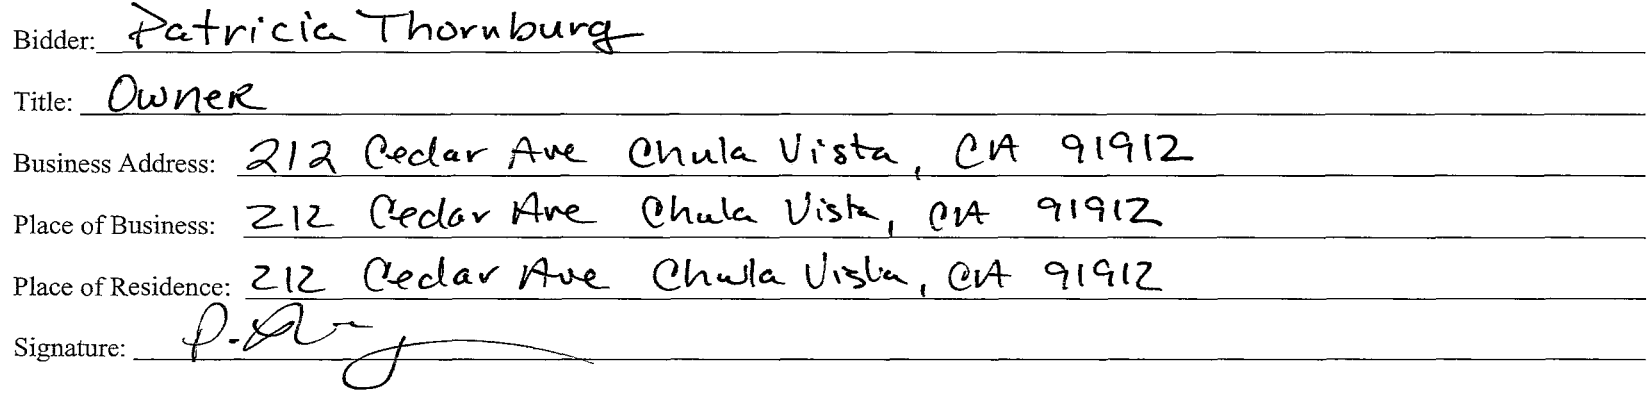 Bidder: Patricia Thornburg
Title: Owner
Business Address: 212 Cedar Ave Chula Vista, CA 91912
Place of Business: 212 Cedar Ave Chula Vista, CA 91912
Place of Residence: 212 Cedar Ave Chula Vista, CA 91912
Signature: P.